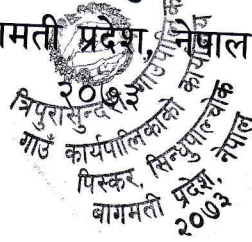 मती प्रदेश, नेपाल
२०७३
त्रिपुरासुन्दरी गाउँपालिका
गाउँ कार्यपालिकाको कार्यालय
पिस्कर, सिन्धुपाल्चोक
बागमती प्रदेश, नेपाल
२०७३